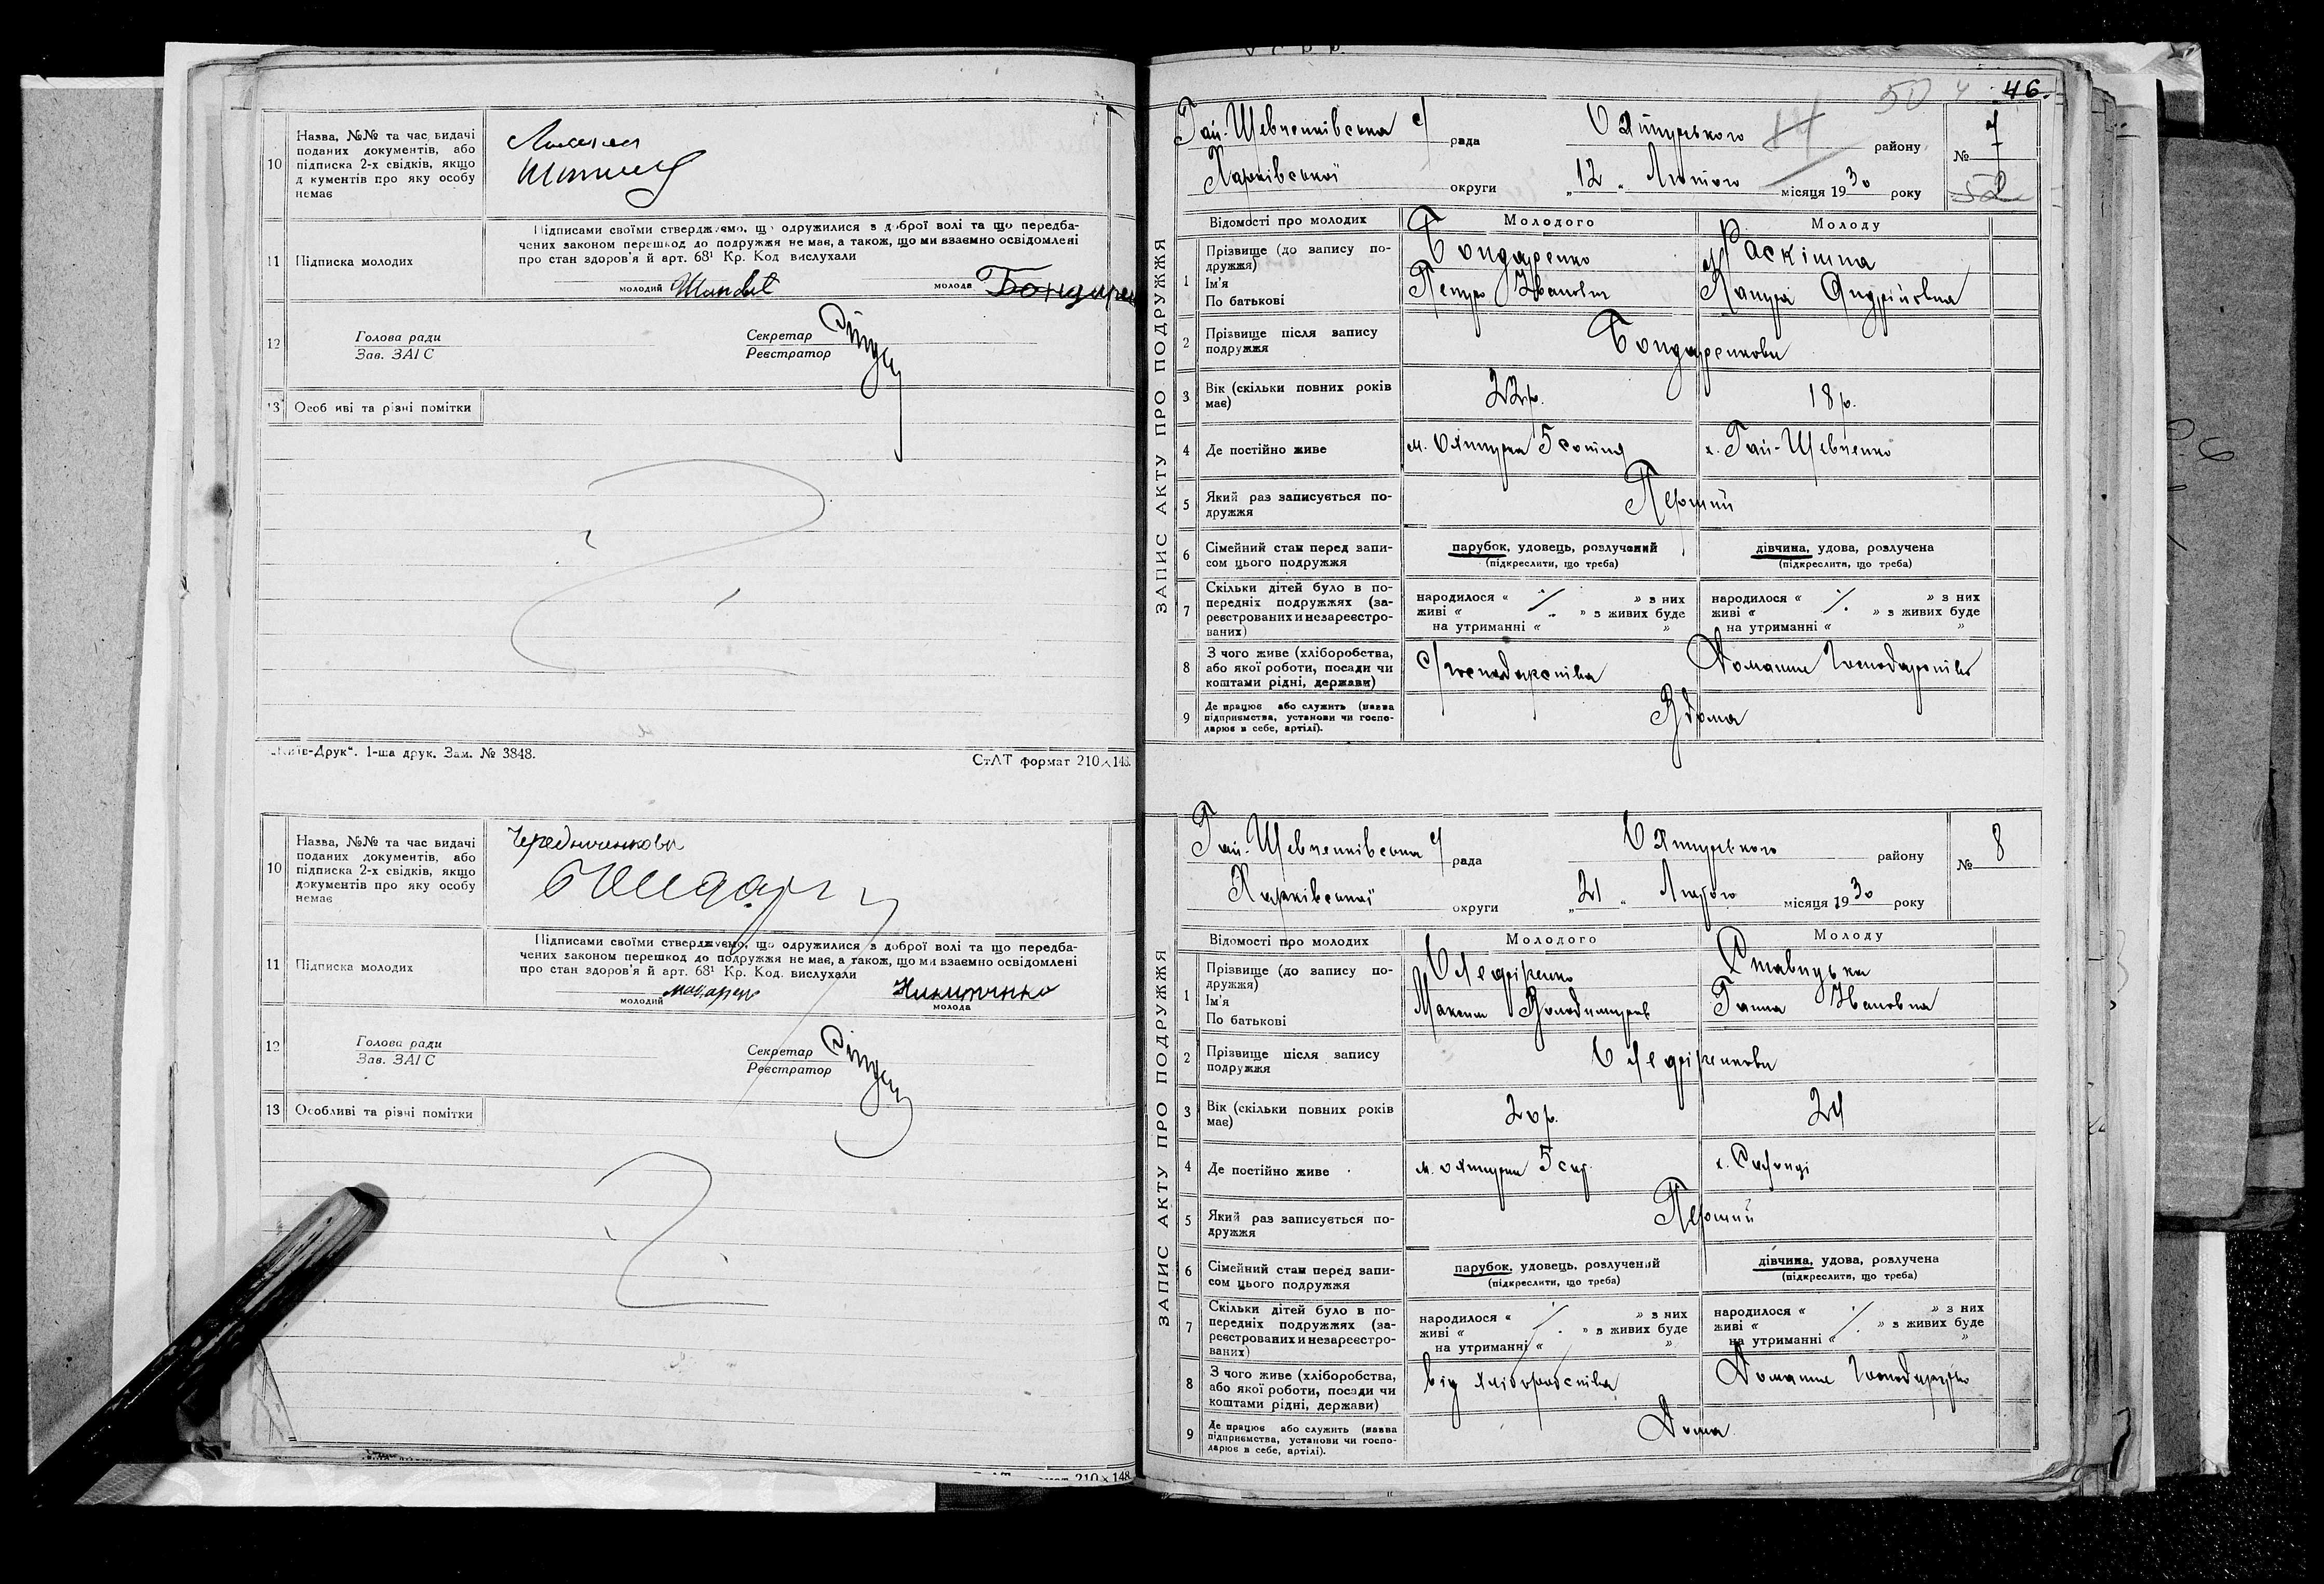 10
Назва, №№ та час видачі
поданих документів, або
підписка 2-х свідків, якщо
д кументів про яку особу
немає
11
Підписка молодих
Підписами своїми стверджуємо, що одружилися з доброї волі та що передба-
чених законом перешкод до подружжя не має, а також, що ми взаємно освідомлені
про стан здоров'я й арт. 68¹ Кр. Код вислухали
молодий
молода Бондарен
12
Голова ради
Зав. ЗАГС
Секретар
Реєстратор
13 Особ иві та різні помітки
„Київ-Друк“. 1-ша друк. Зам. № 3848.
СтАТ формат 210×148.
10
Назва, №№ та час видачі
поданих документів, або
підписка 2-х свідків, якщо
документів про яку особу
немає
Чередниченкова
11
Підписка молодих
Підписами своїми стверджуємо, що одружилися з доброї волі та що передба-
чених законом перешкод до подружжя не має, а також, що ми взаємно освідомлені
про стан здоров'я й арт. 68¹ Кр. Код. вислухали
молодий
молода
12
Голова ради
Зав. ЗАГС
Секретар
Реєстратор
13 Особливі та різні помітки
210×148
50 46.
Гай-Шевченківська с/ рада Охтирського району № 7
Харківської округи „12“ Лютого місяця 1930 року 52
ЗАПИС АКТУ ПРО ПОДРУЖЖЯ
Відомості про молодих Молодого Молоду
1 Прізвище (до запису по-
дружжя)
Ім'я
По батькові
Бондаренко
Петро Іванович
Раскітна
Андріївна
2 Прізвище після запису
подружжя
Бондаренкови
3 Вік (скільки повних років
має)
22р. 18р.
4 Де постійно живе м. Охтирка 5 сотня х. Гай-Шевченко
5 Який раз записується по-
дружжя
Перший
6 Сімейний стан перед запи-
сом цього подружжя
парубок, удовець, розлучений
(підкреслити, що треба)
дівчина, удова, розлучена
(підкреслити, що треба)
7 Скільки дітей було в по-
передніх подружжях (за-
реєстрованих и незареєстро-
ваних)
народилося « » з них
живі « » з живих буде
на утриманні « »
народилося « » з них
живі « » з живих буде
на утриманні « »
8 З чого живе (хліборобства,
або якої роботи, посади чи
коштами рідні, держави)
с/господарства
Домашнє господарство
9 Де працює або служить (назва
підприємства, установи чи госпо-
дарює в себе, артілі).
Вдома
Гай-Шевченківська с/ рада Охтирського району № 8
Харківської округи „21“ Лютого місяця 1930 року
ЗАПИС АКТУ ПРО ПОДРУЖЖЯ
Відомості про молодих Молодого Молоду
1 Прізвище (до запису по-
дружжя)
Ім'я
По батькові
Максим
Ставицька
Ганна Івановна
2 Прізвище після запису
подружжя
3 Вік (скільки повних років
має)
20р. 24
4 Де постійно живе м. Охтирка 5 х.
5 Який раз записується по-
дружжя
Перший
6 Сімейний стан перед запи-
сом цього подружжя
парубок, удовець, розлучений
(підкреслити, що треба)
дівчина, удова, розлучена
(підкреслити, що треба)
7 Скільки дітей було в по-
передніх подружжях (за-
реєстрованих и незареєстро-
ваних)
народилося « » з них
живі « » з живих буде
на утриманні « »
народилося « » з них
живі « » з живих буде
на утриманні « »
8 З чого живе (хліборобства,
або якої роботи, посади чи
коштами рідні, держави)
від хліборобства
Домашнє господарство
9 Де працює або служить (назва
підприємства, установи чи госпо-
дарює в себе, артілі).
Дома